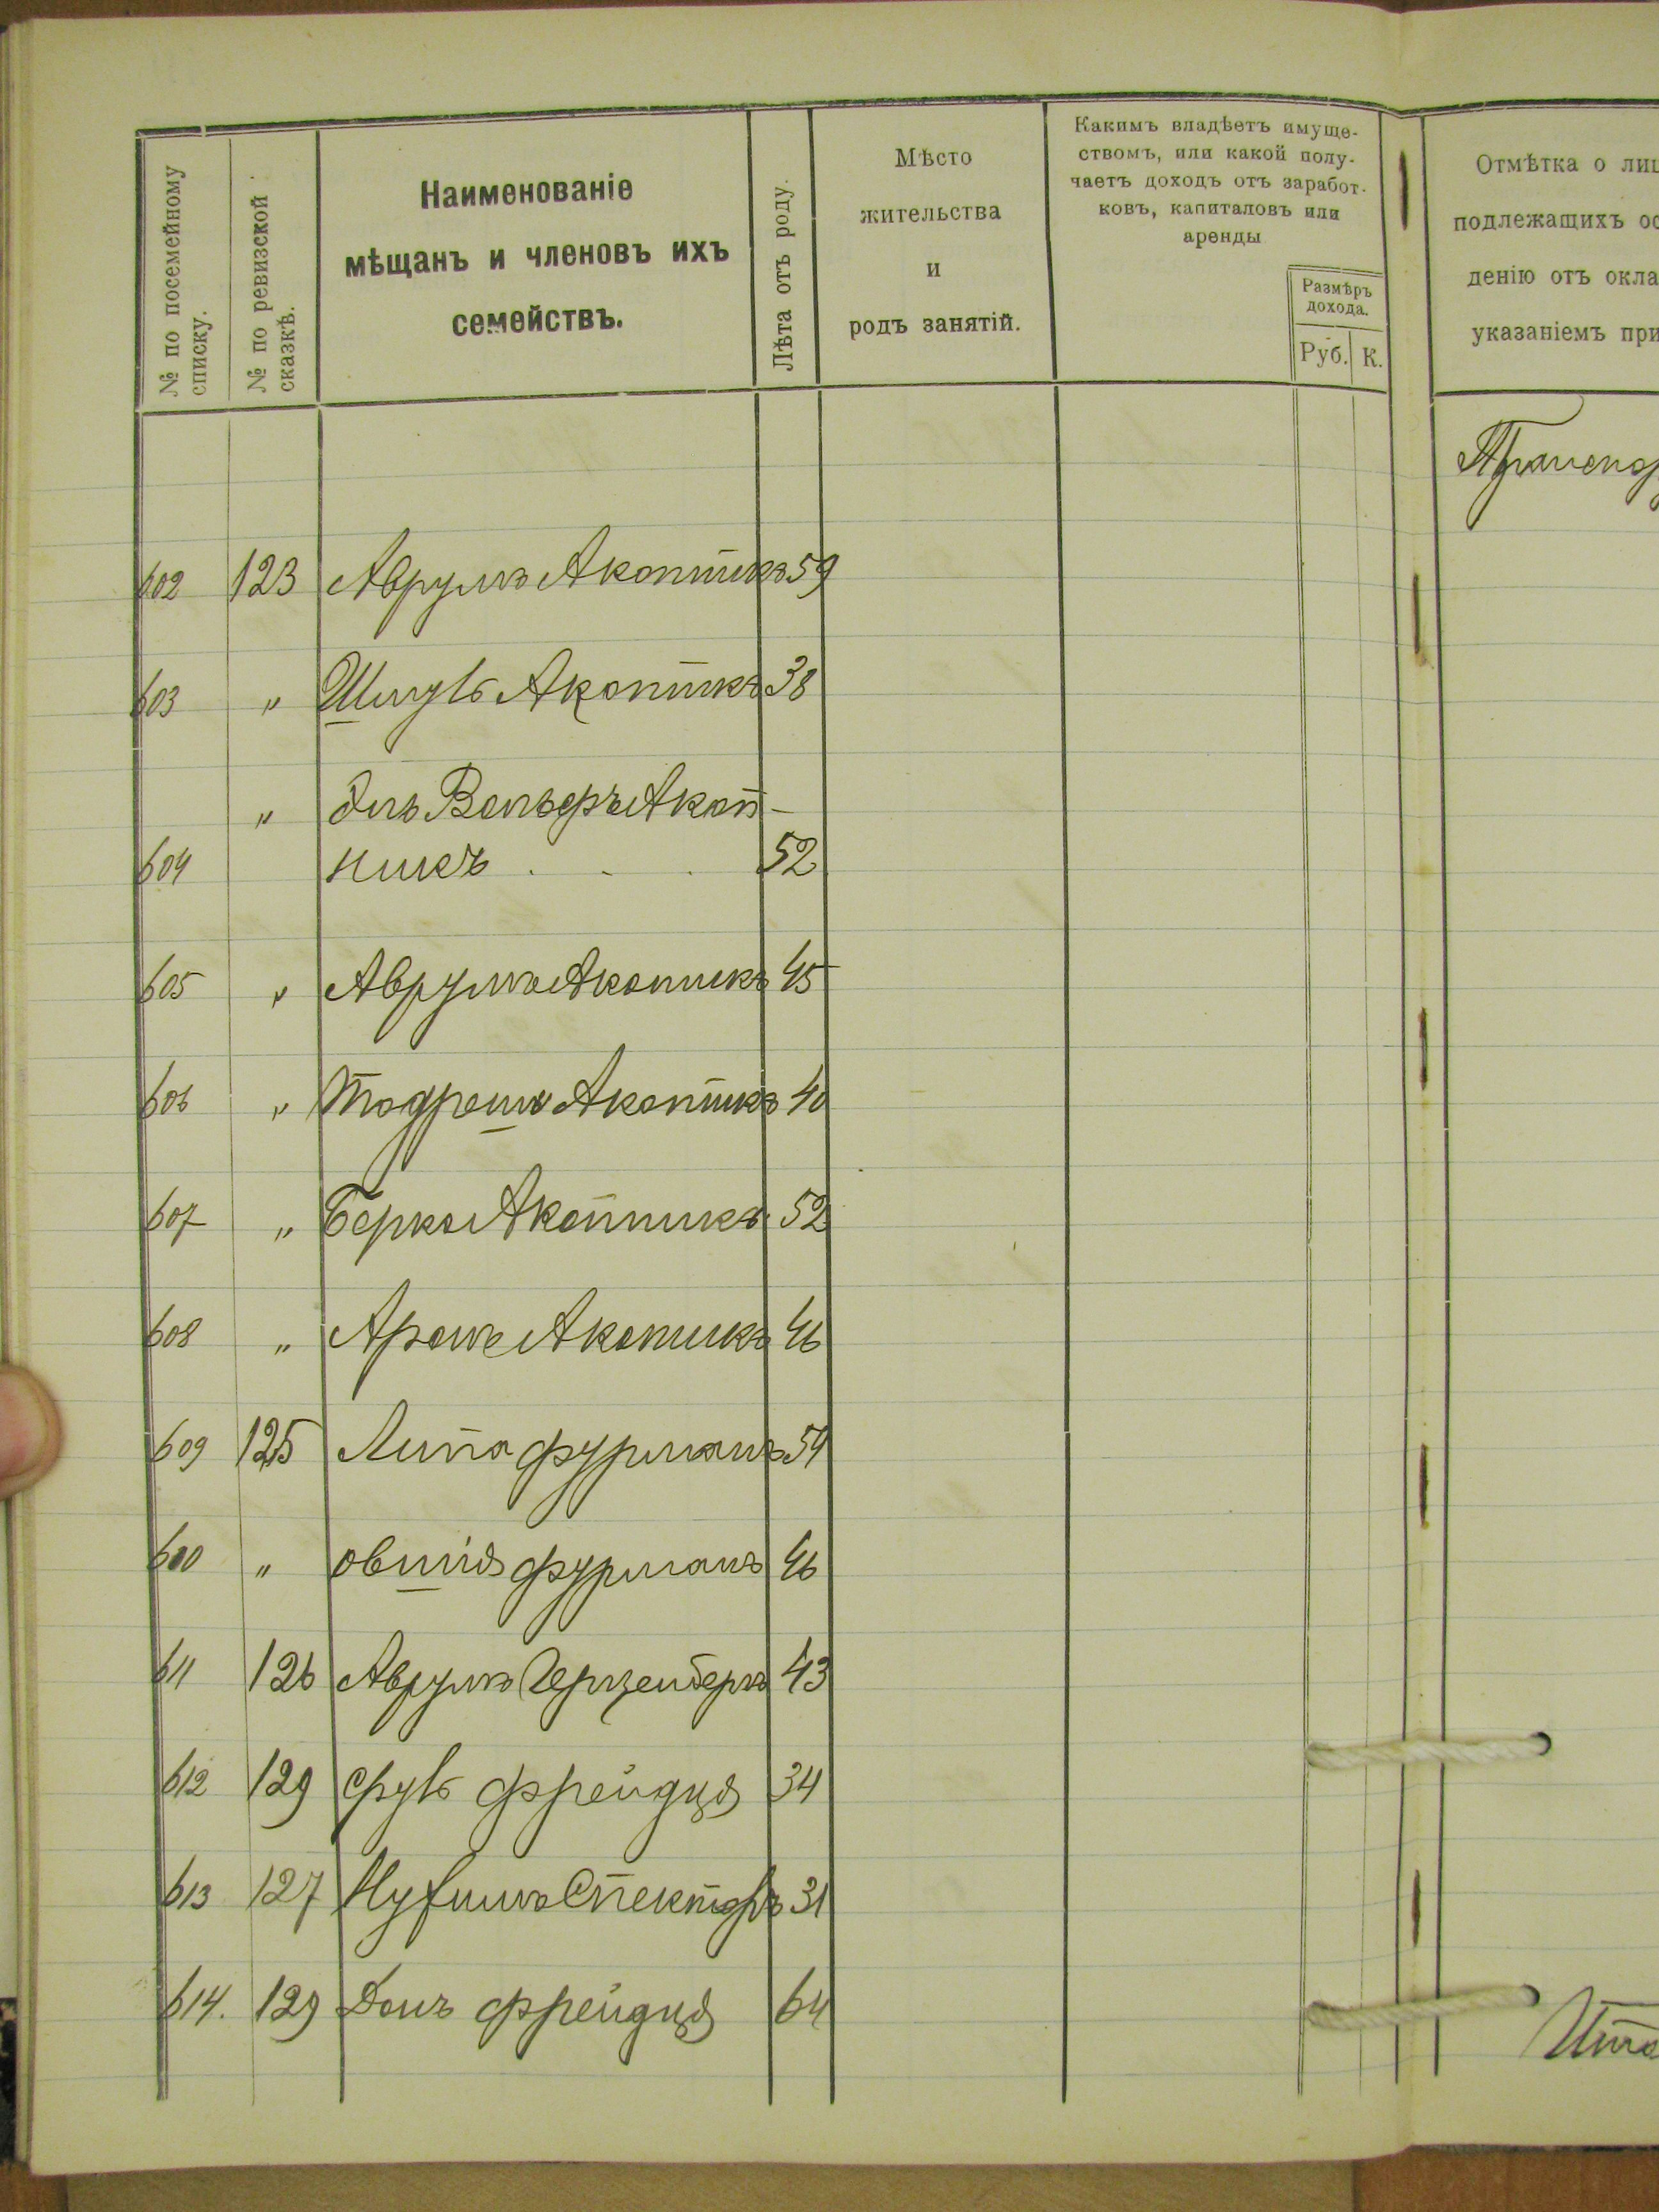 № по посемейному
списку.
№ по ревизской
сказкѣ.
Наименованіе
мѣщанъ и членовъ ихъ
семействъ.
Лѣта отъ роду.
Мѣсто
жительства
и
родъ занятій.
Какимъ владѣетъ имуще-
ствомъ, или какой полу-
чаетъ доходъ отъ заработ-
ковъ, капиталовъ или
аренды
Размѣръ
дохода.
Руб. К.
Отмѣтка о лиц
подлежащихъ ос
денію отъ окла
указаніемъ при
Транспор
602 123 Аврумъ Акопникъ 59
603 " Шмуль Акопникъ 38
" Эль Вольфъ Акоп-
604 никъ . . . 52
605 " Аврумъ Акопникъ 45
606 " Тодресъ Акопникъ 40
607 " Берко Акопникъ 52
608 " Аронъ Акопникъ 46
609 125 Липа Фурманъ 54
610 " Овшія Фурманъ 46
611 126 Аврумъ Герценбергъ 43
612 129 Сруль Фрейдця 34
613 127 Нухимъ Спекторъ 31
614. 129 Фрейдця 64
Ито